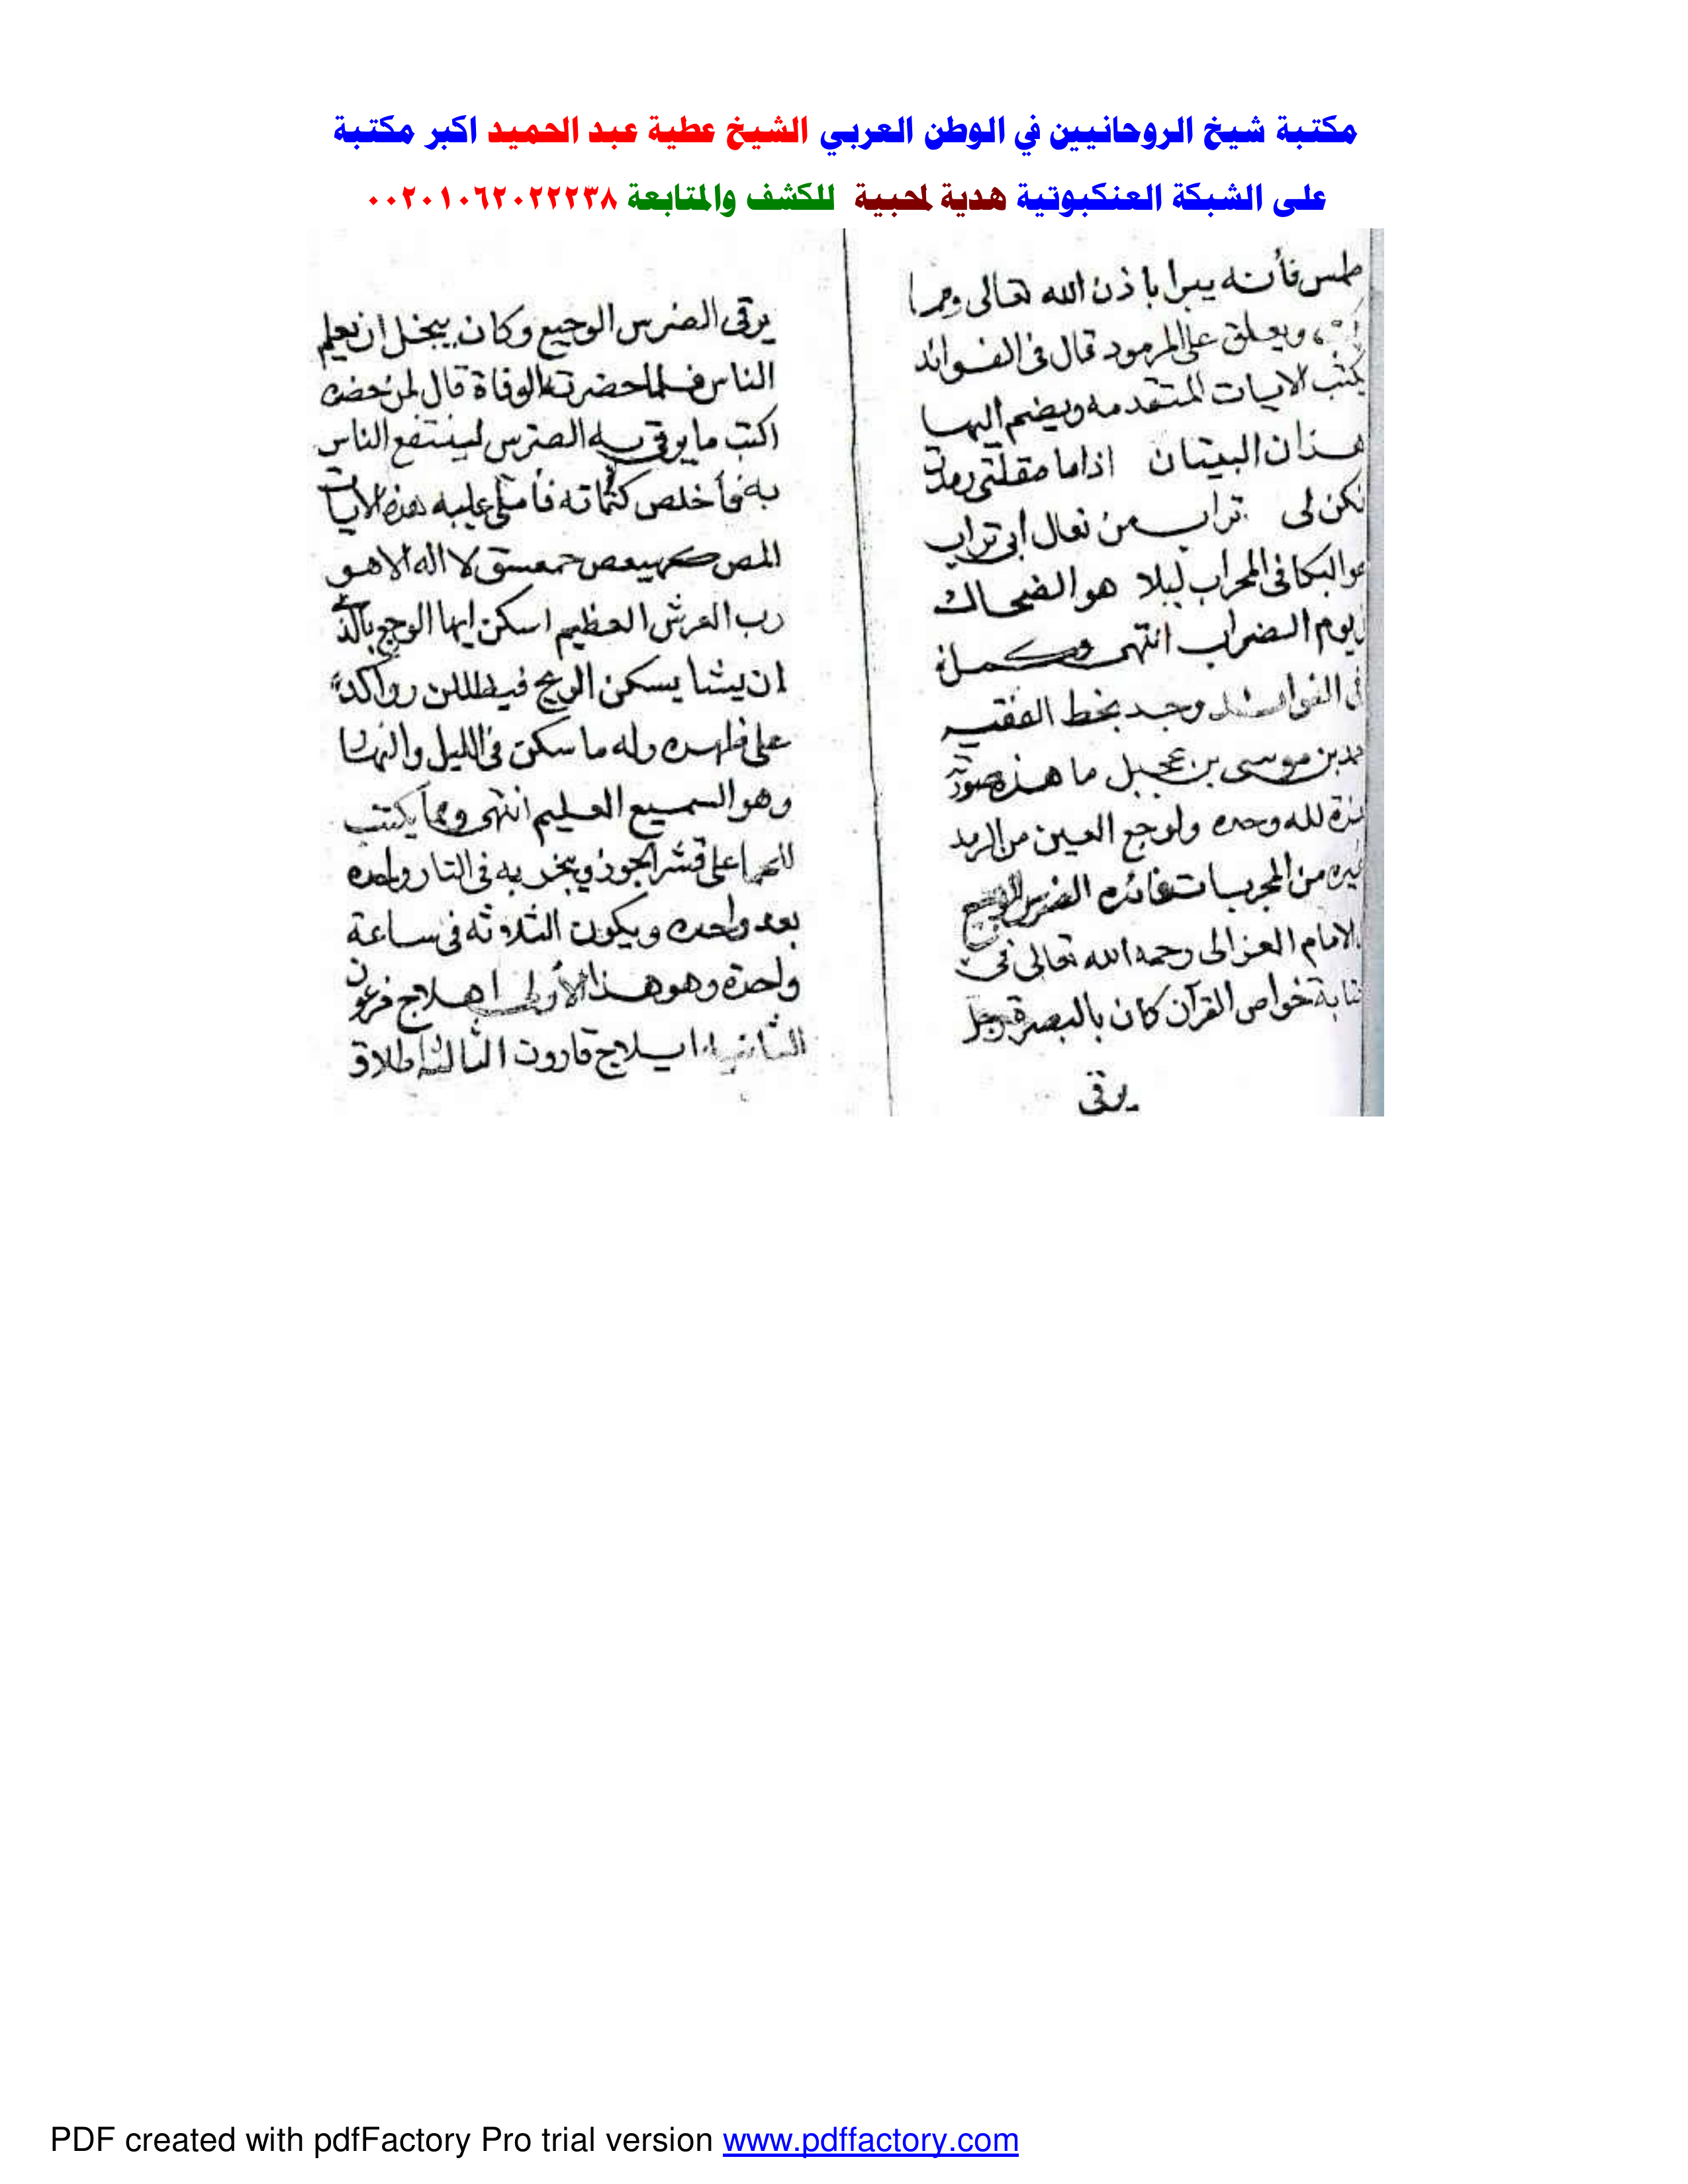 مكتبة شيخ الروحانيين في الوطن العربي الشيخ عطية عبد الحميد اكبر مكتبة
على الشبكة العنكبوتية هدية لمحبية للكشف والمتابعة ٠٠٢٠١٠٦٢٠٢٢٢٣٨
طس فأنه يبرا باذن الله تعالى ومما
ويعلق على المرمود قال فى الفوائد
يكتب الابيات المتقدمه ويضم اليها
هذان البيتان اذا ما مقلتى رمدت
تراب من نعال أبى تراب
هو البكا فى المحراب ليلا هو الضحاك
يوم الضراب انتهى
فى الفوائد وجد بخط الفقيه
بن موسى بن عجيل ما هذه صورته
لله وحده ولوجع العين من الرمد
من المجربات فائده الضرس
الامام الغزالى رحمه الله تعالى فى
خواص القرآن كان بالبصرة رجل
يرقى
يرقى الضرس الوجيع وكان يبخل ان يعلم
الناس فلما حضرته الوفاة قال لمن حضره
اكتب ما يرقى به الضرس لينتفع الناس
به فأملى عليه هذه الايات
المص كهيعص حمعسق لا اله الا هو
رب العرش العظيم اسكن ايها الوجع بالذى
ان يشا يسكن الريح فيظللن رواكد
على ظهره وله ما سكن فى الليل والنهار
وهو السميع العليم انتهى ومما يكتب
للحما على قشر الجوز ويبخر به فى النار واحده
بعد واحده ويكون الثلاثه فى ساعة
واحدة وهو هذا الأولى فرعون
الثانيه قارون الثالثه
PDF created with pdfFactory Pro trial version www.pdffactory.com